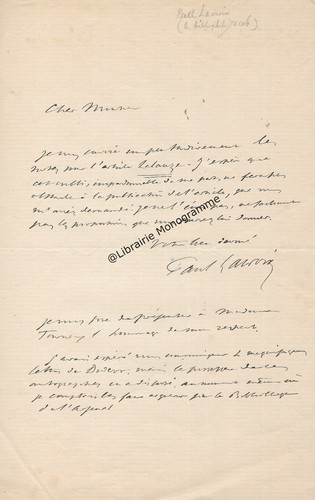 Paul Lacroix
(le bibliophile Jacob)
Cher Monsieur
Je vous envoie un peu tardivement les
notes pour l'article Lalauze. J'espère que
cet oubli, impardonnable de ma part, ne fera pas
obstacle à la publication de l'article, que vous
m'avez demandé
pas les proportions que vous
Votre bien dévoué
Paul Lacroix
@Librairie Monogramme
Je vous prie de présenter à Madame
Tourneux l'hommage de mon respect.
J'avais espéré vous communiquer de magnifiques
lettres de Diderot, mais le possesseur de ces
autographes en a disposé, au moment même où
je comptais les faire acquérir par la Bibliothèque
de l'Arsenal